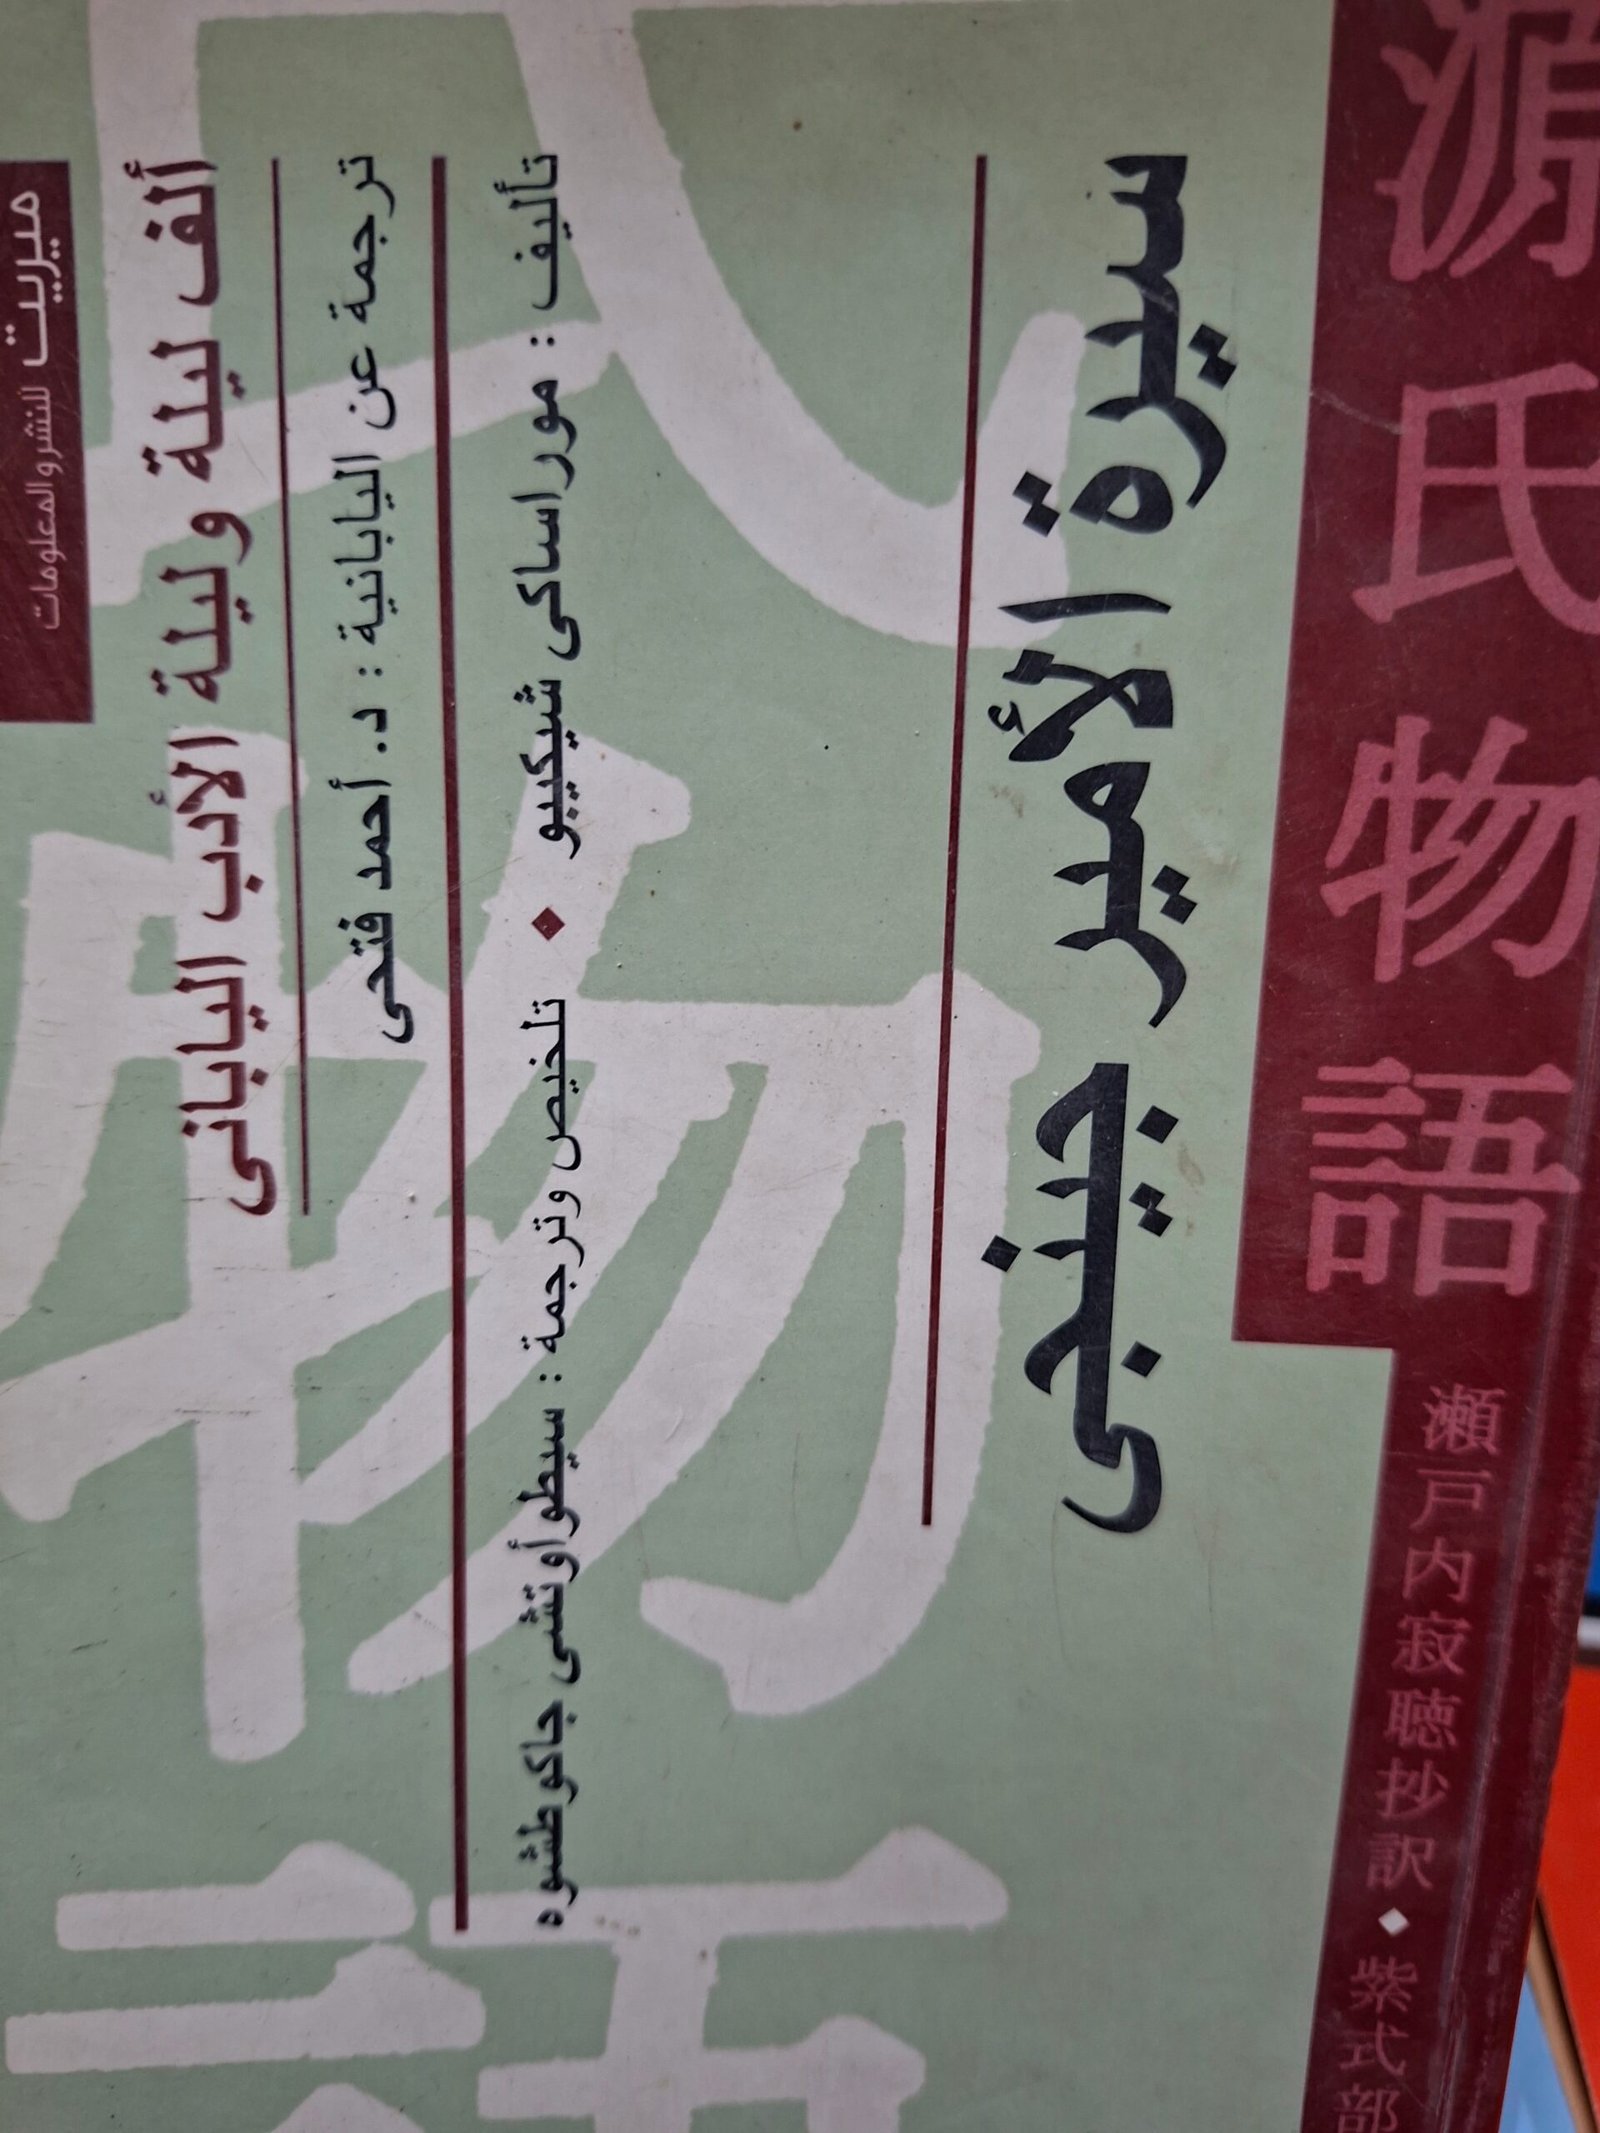 源氏物語
瀬戸内寂聴抄訳◆紫式部
سيرة الأمير جينجى
تأليف : موراساكى شيكيبو ◆ تلخيص وترجمة : سيطوأوتشى جاكوطشوه
ترجمة عن اليابانية : د. أحمد فتحى
ألف ليلة وليلة الأدب اليابانى
ميريت للنشر والمعلومات